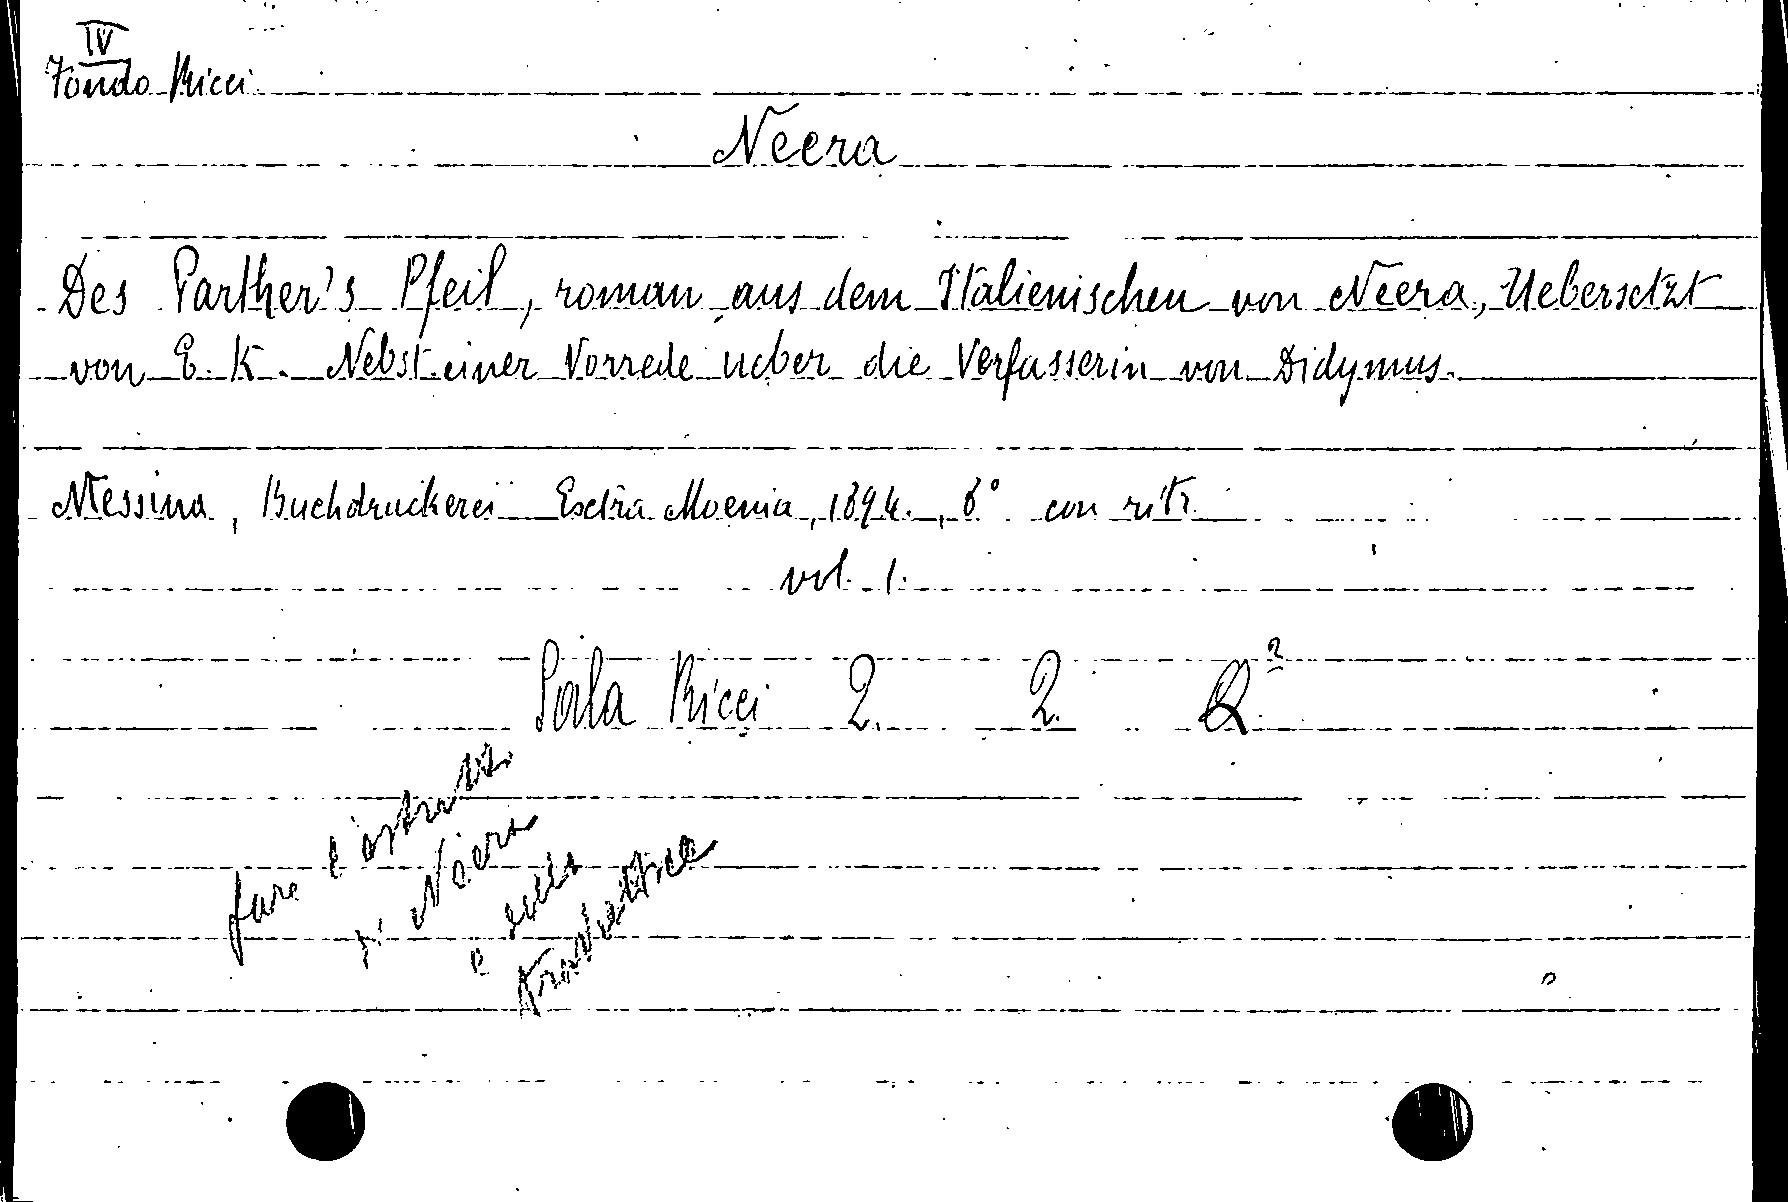 IV
Fondo Ricci
Neera
Des Parther's Pfeil, roman aus dem Italienischen von Neera, Uebersetzt
von E. K. Nebst einer Vorrede ueber die Verfasserin von Didymus.
Messina, Buchdruckerei Extra Moenia, 1894., 8° con ritr.
vol. 1.
Sala Ricci 2. 2. Q²
fare l'estratto
di Neera
e della
traduttrice